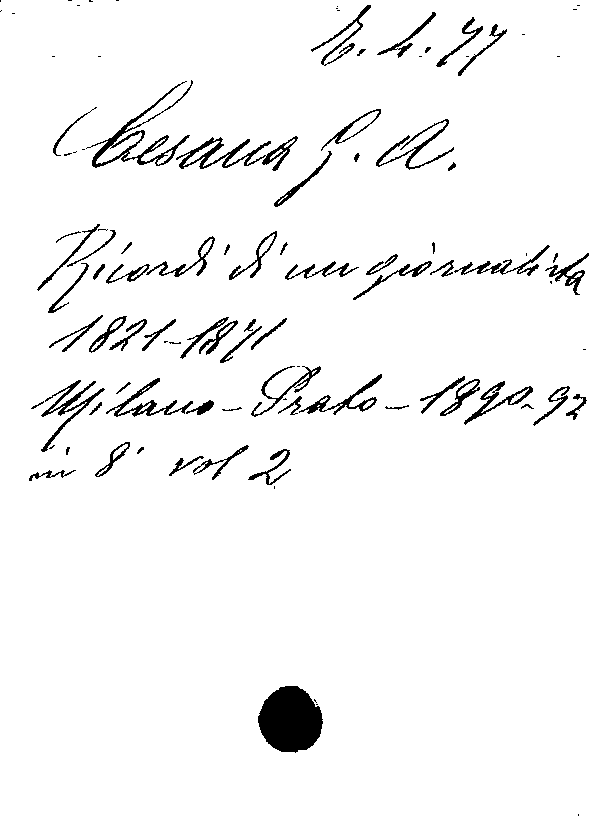 E. 4. 77
Cesana G. A.
Ricordi di un giornalista
1821-1871
Milano - Prato - 1890-92
in 8° vol 2